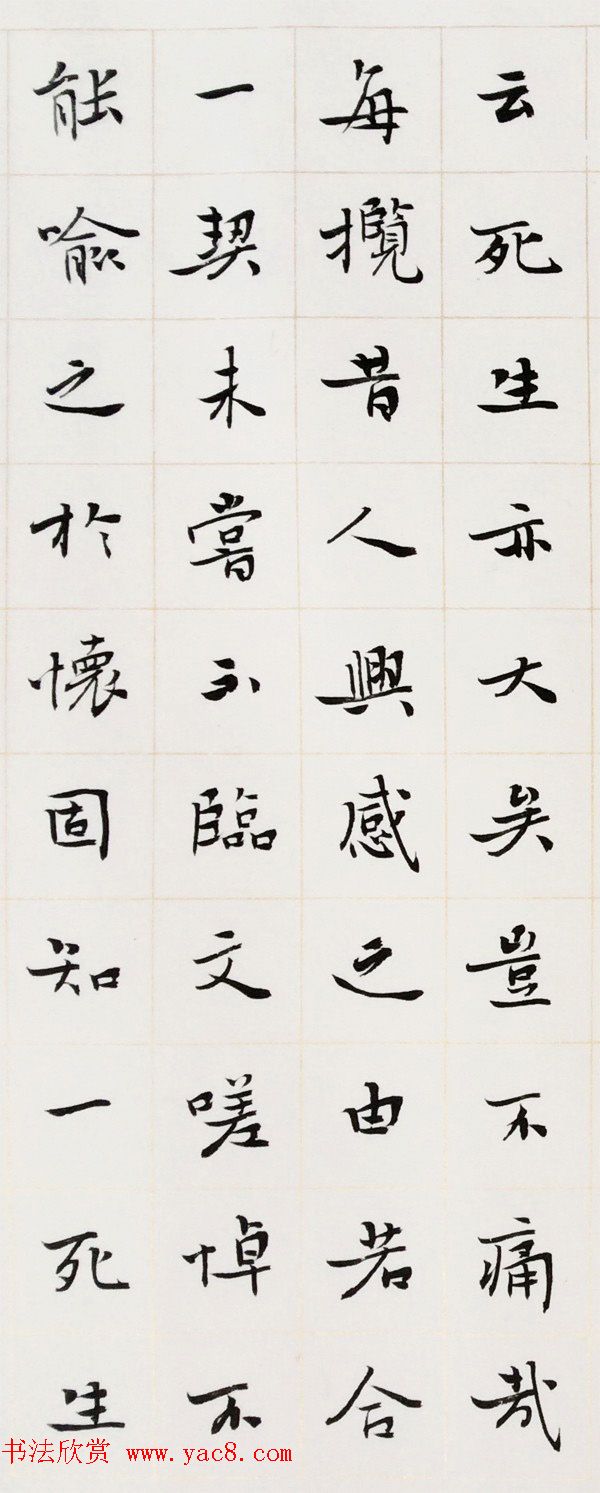 云死生亦大矣豈不痛哉
每攬昔人興感之由若合
一契未嘗不臨文嗟悼不
能喻之於懷固知一死生
书法欣赏 www.yac8.com